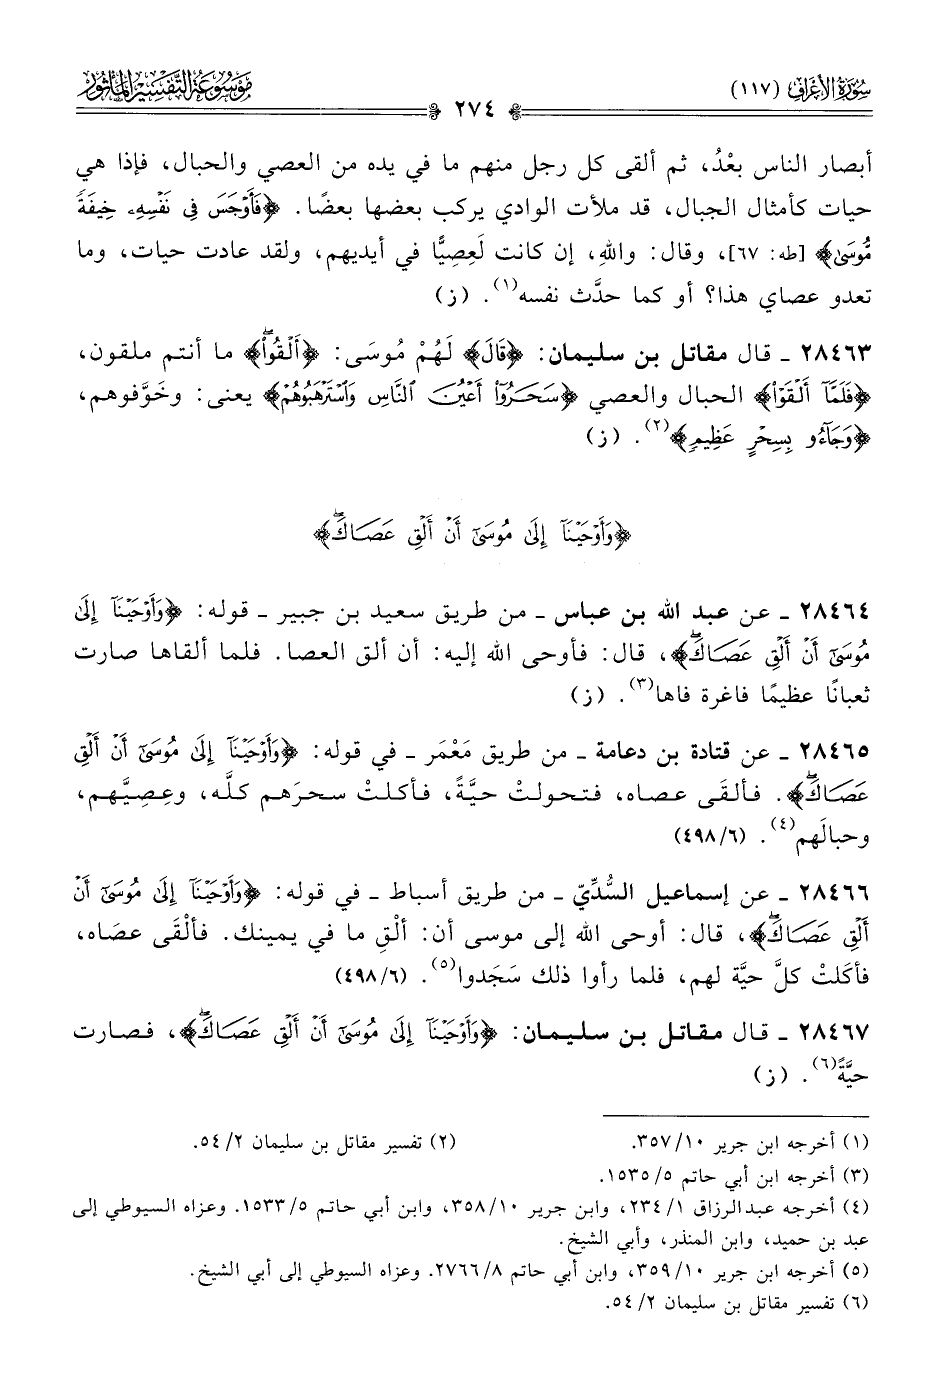 سُورَةُ الأَعْرَافِ (١١٧)
٢٧٤
مَوْسُوعَةُ التَّفْسِيرِ المَأْثُورِ
أبصار الناس بعْدُ، ثم ألقى كل رجل منهم ما في يده من العصي والحبال، فإذا هي
حيات كأمثال الجبال، قد ملأت الوادي يركب بعضها بعضًا. ﴿فَأَوْجَسَ فِي نَفْسِهِۦ خِيفَةً
مُّوسَىٰ﴾ [طه: ٦٧]، وقال: واللهِ، إن كانت لَعِصِيًّا في أيديهم، ولقد عادت حيات، وما
تعدو عصاي هذا؟ أو كما حدَّث نفسه(١). (ز)
٢٨٤٦٣ ـ قال مقاتل بن سليمان: ﴿قَالَ﴾ لَهُمْ مُوسَى: ﴿أَلْقُوا۟ۖ﴾ ما أنتم ملقون،
﴿فَلَمَّآ أَلْقَوْا۟﴾ الحبال والعصي ﴿سَحَرُوٓا۟ أَعْيُنَ ٱلنَّاسِ وَٱسْتَرْهَبُوهُمْ﴾ يعني: وخَوَّفوهم،
﴿وَجَآءُو بِسِحْرٍ عَظِيمٍ﴾(٢). (ز)
﴿وَأَوْحَيْنَآ إِلَىٰ مُوسَىٰٓ أَنْ أَلْقِ عَصَاكَۖ﴾
٢٨٤٦٤ ـ عن عبد الله بن عباس ـ من طريق سعيد بن جبير ـ قوله: ﴿وَأَوْحَيْنَآ إِلَىٰ
مُوسَىٰٓ أَنْ أَلْقِ عَصَاكَۖ﴾، قال: فأوحى الله إليه: أن ألق العصا. فلما ألقاها صارت
ثعبانًا عظيمًا فاغرة فاها(٣). (ز)
٢٨٤٦٥ ـ عن قتادة بن دعامة ـ من طريق مَعْمَر ـ في قوله: ﴿وَأَوْحَيْنَآ إِلَىٰ مُوسَىٰٓ أَنْ أَلْقِ
عَصَاكَۖ﴾. فألقَى عصاه، فتحولتْ حيَّةً، فأكلتْ سحرَهم كلَّه، وعِصِيَّهم،
وحبالَهم(٤). (٦/ ٤٩٨)
٢٨٤٦٦ ـ عن إسماعيل السُّدِّيّ ـ من طريق أسباط ـ في قوله: ﴿وَأَوْحَيْنَآ إِلَىٰ مُوسَىٰٓ أَنْ
أَلْقِ عَصَاكَۖ﴾، قال: أوحى الله إلى موسى أن: ألْقِ ما في يمينك. فألْقَى عصَاه،
فأكَلتْ كلَّ حيَّة لهم، فلما رأوا ذلك سَجَدوا(٥). (٦/ ٤٩٨)
٢٨٤٦٧ ـ قال مقاتل بن سليمان: ﴿وَأَوْحَيْنَآ إِلَىٰ مُوسَىٰٓ أَنْ أَلْقِ عَصَاكَۖ﴾، فصارت
حيَّةً(٦). (ز)
(١) أخرجه ابن جرير ١٠/ ٣٥٧. (٢) تفسير مقاتل بن سليمان ٢/ ٥٤.
(٣) أخرجه ابن أبي حاتم ٥/ ١٥٣٥.
(٤) أخرجه عبدالرزاق ١/ ٢٣٤، وابن جرير ١٠/ ٣٥٨، وابن أبي حاتم ٥/ ١٥٣٣. وعزاه السيوطي إلى
عبد بن حميد، وابن المنذر، وأبي الشيخ.
(٥) أخرجه ابن جرير ١٠/ ٣٥٩، وابن أبي حاتم ٨/ ٢٧٦٦. وعزاه السيوطي إلى أبي الشيخ.
(٦) تفسير مقاتل بن سليمان ٢/ ٥٤.